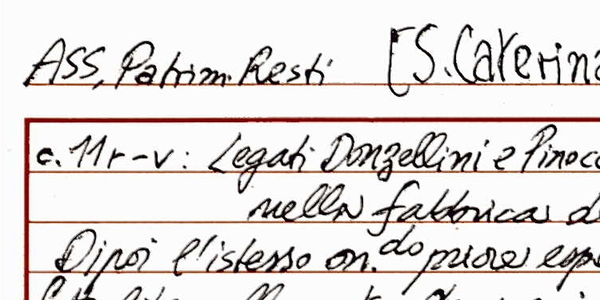 ASS, Patrim. Resti [S. Caterina
c. 11r-v: Legati Donzellini e Pinocc
nella fabbrica d
Dipoi l'istesso on.do priore esp